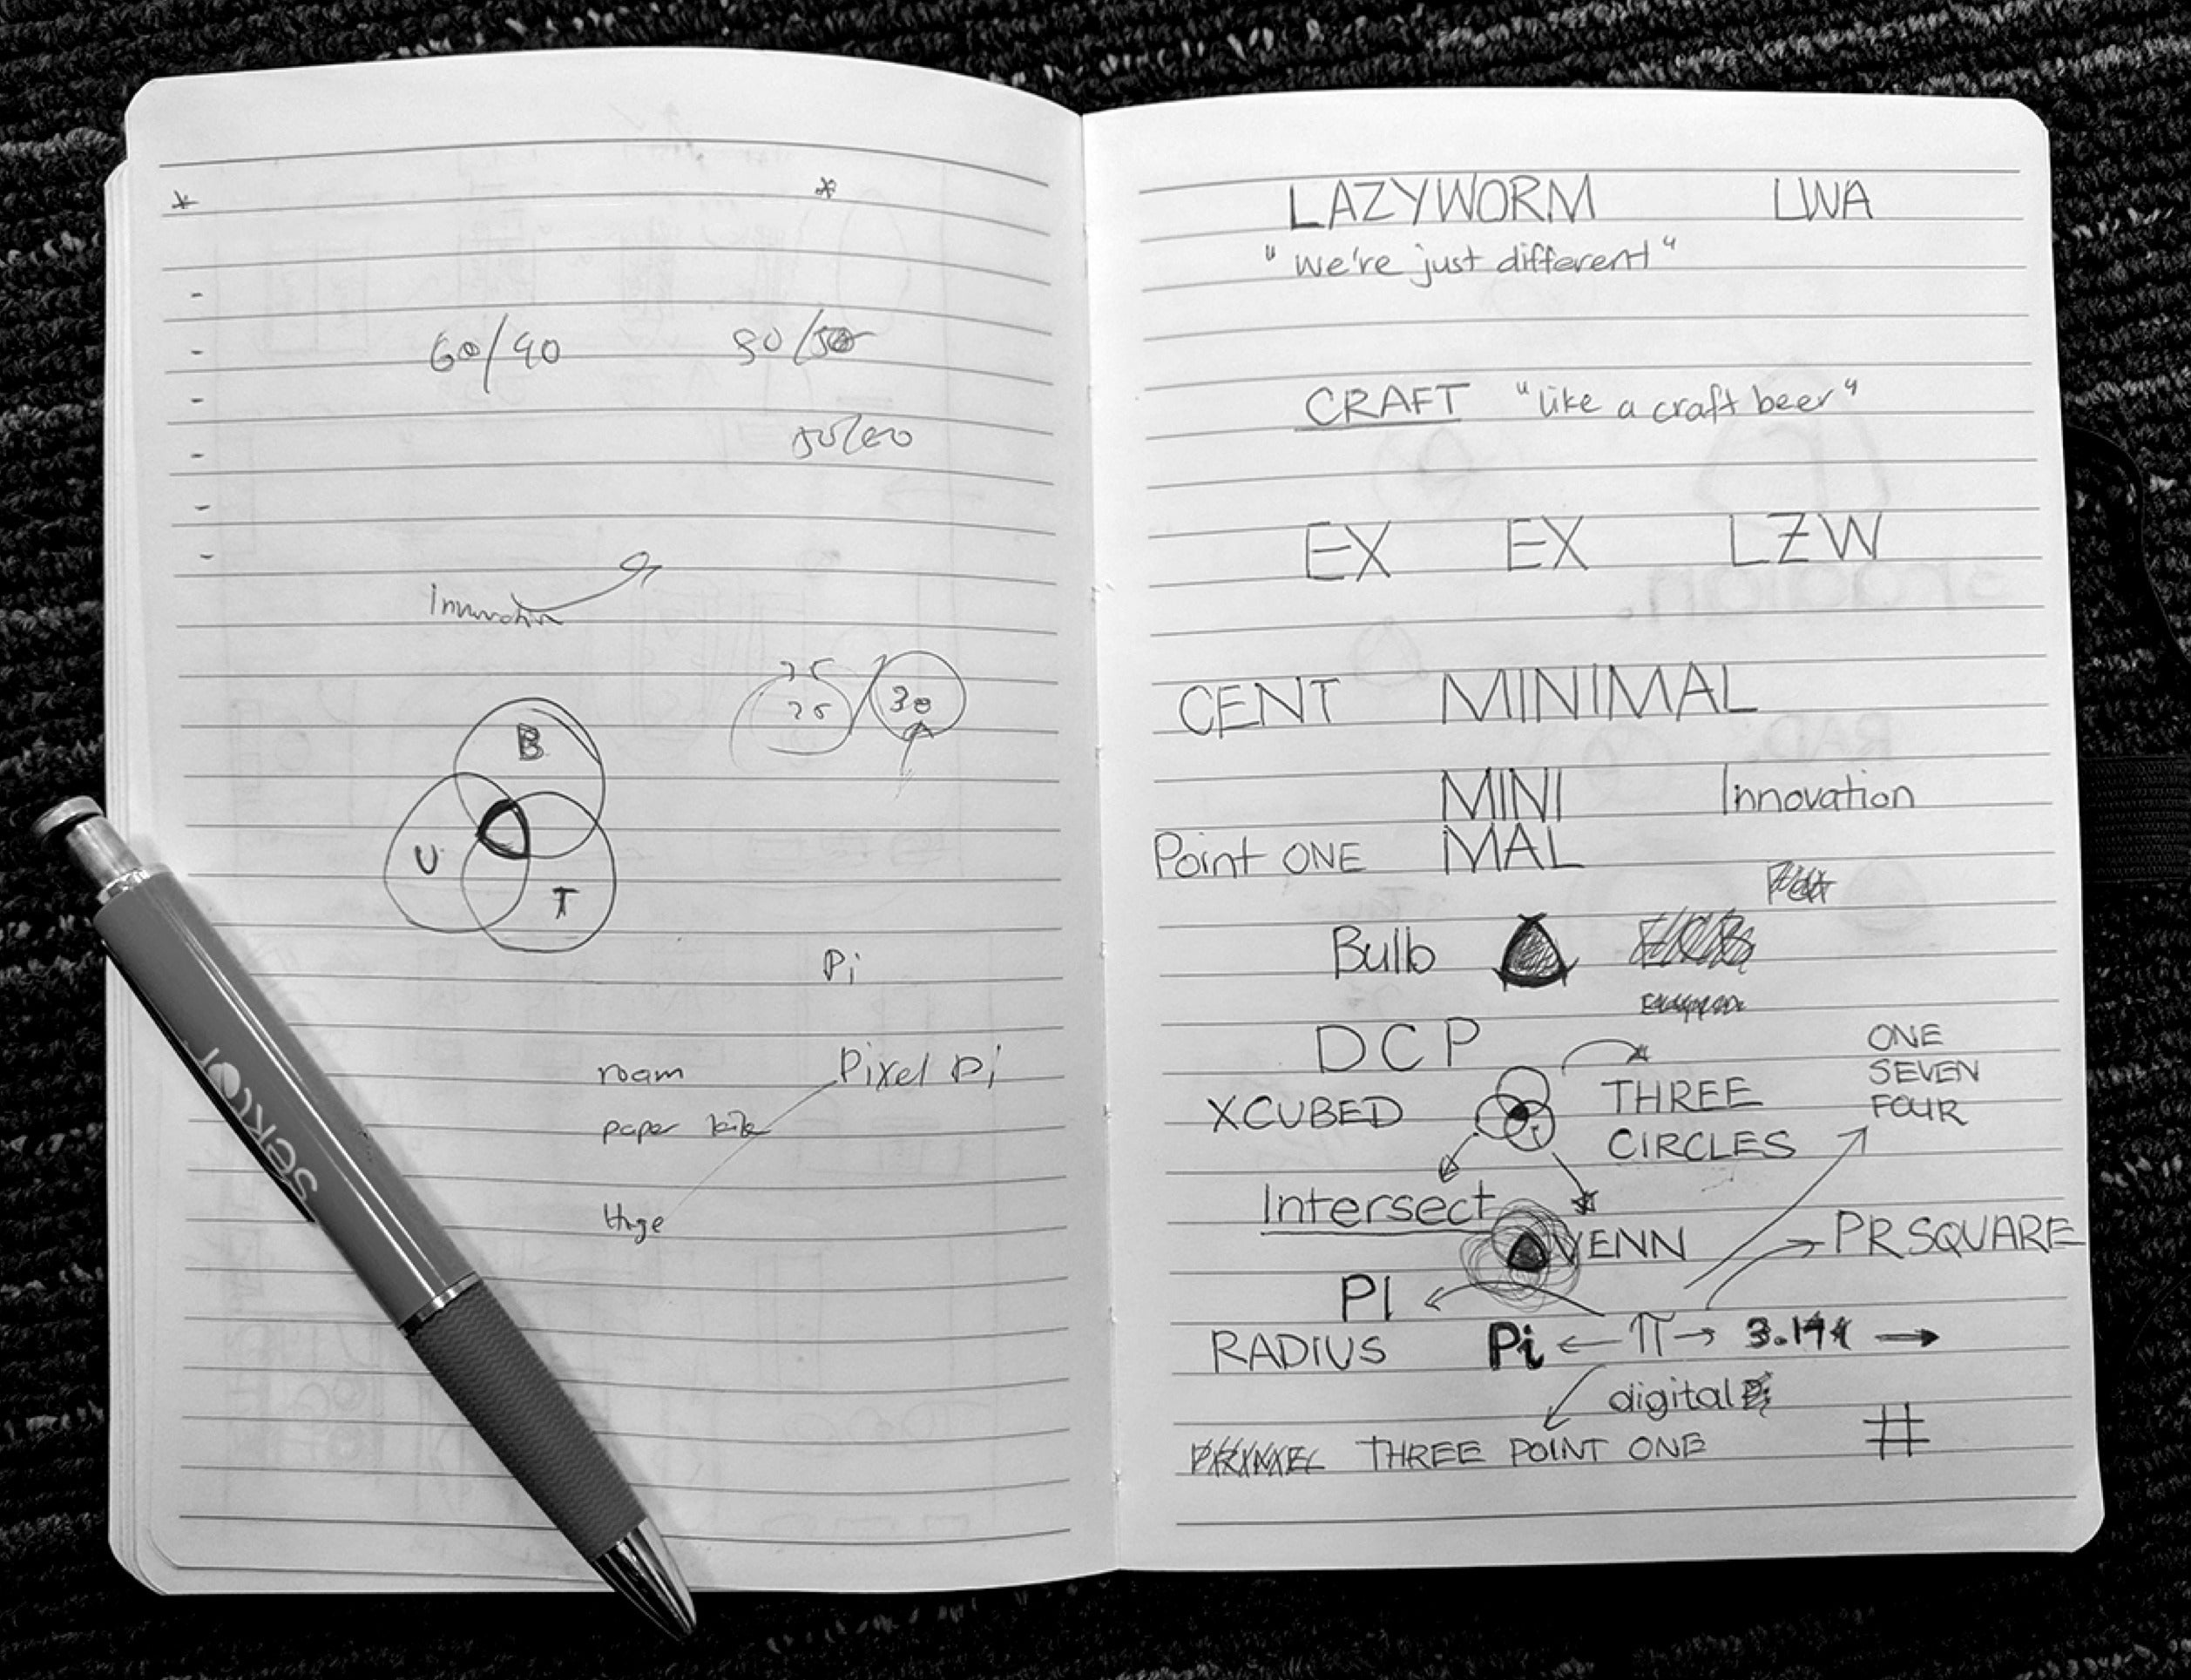 60/40
Innovation
25
30
B
U
T
Pi
roam
Pixel Pi
paper kite
Huge
sektor
LAZYWORM LWA
"we're just different"
CRAFT "like a craft beer"
EX EX LZW
CENT MINIMAL
MINI Innovation
Point ONE MAL
Bulb
DCP
ONE
SEVEN
FOUR
XCUBED
THREE
CIRCLES
Intersect
VENN
PR SQUARE
PI
RADIUS Pi ← π → 3.14 →
digital
THREE POINT ONE #